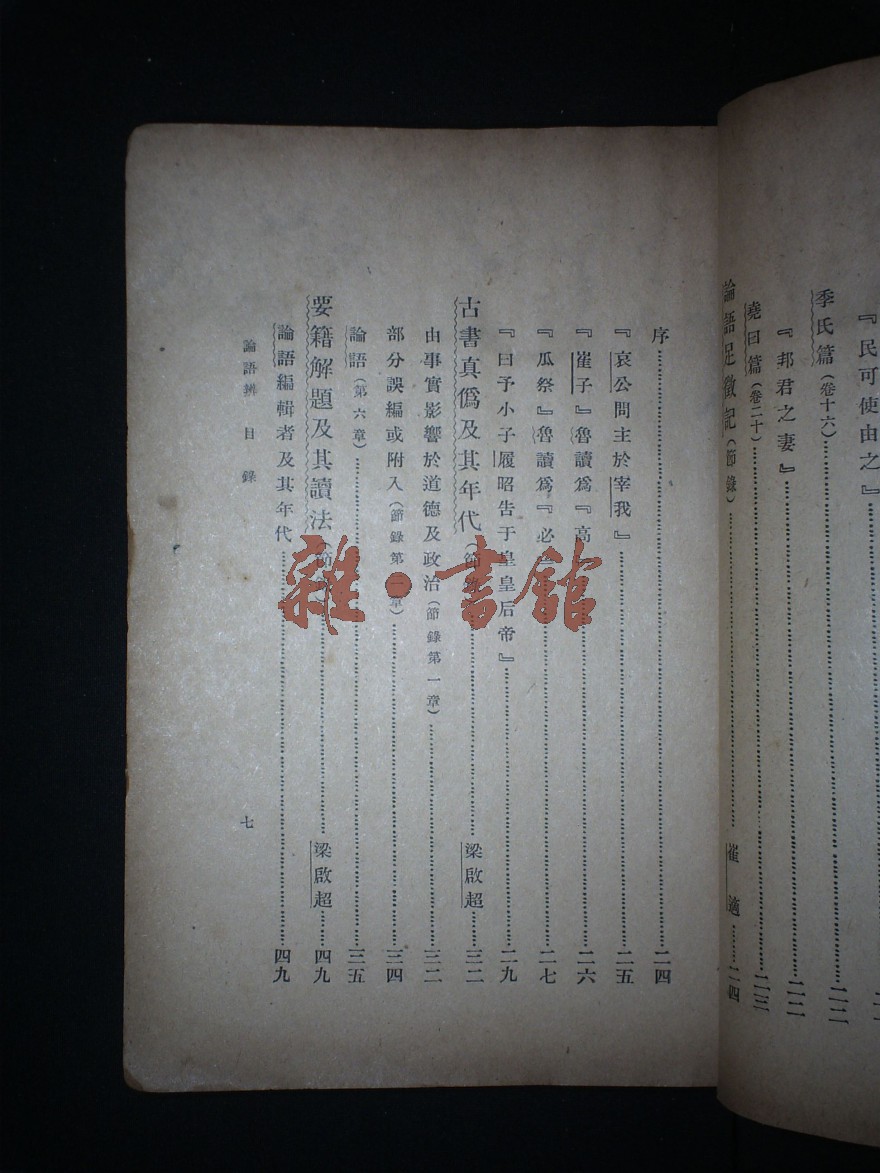 『民可使由之』
季氏篇（卷十六）……二二
『邦君之妻』……二二
堯曰篇（卷二十）……二三
論語足徵記（節錄）……崔適……二四
序……二四
『哀公問主於宰我』……二五
『崔子』魯讀爲『高……二六
『瓜祭』魯讀爲『必……二七
『曰予小子履昭告于皇皇后帝』……二九
古書真僞及其年代（節……梁啟超……三二
由事實影響於道德及政治（節錄第一章）……三二
部分誤編或附入（節錄第一章）……三四
論語（第六章）……三五
要籍解題及其讀法（節……梁啟超……四九
論語編輯者及其年代……四九
論語辨 目錄 七
雜·書館